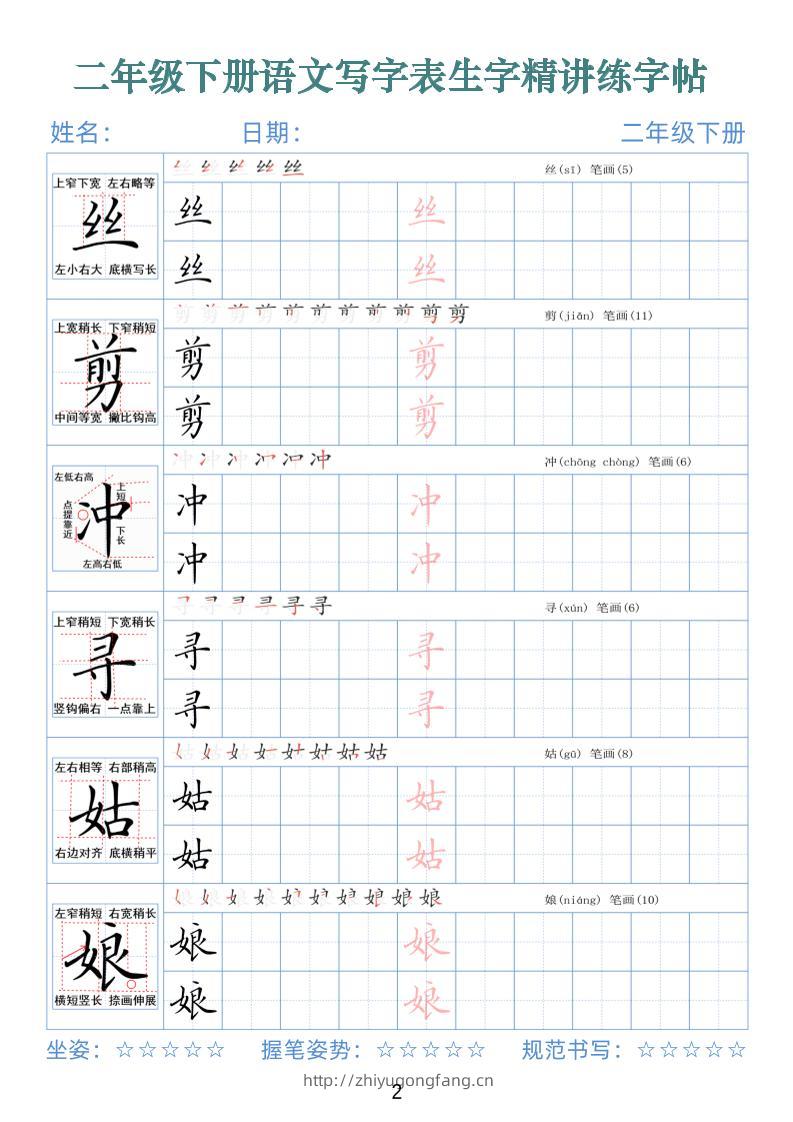 二年级下册语文写字表生字精讲练字帖
姓名： 日期： 二年级下册
丝(sī) 笔画(5)
上窄下宽 左右略等
丝
左小右大 底横写长
丝 丝
丝 丝
剪(jiǎn) 笔画(11)
上宽稍长 下窄稍短
剪
中间等宽 撇比钩高
剪 剪
剪 剪
冲(chōng chòng) 笔画(6)
左低右高
上短
点提靠近
冲
下长
左高右低
冲 冲
冲 冲
寻(xún) 笔画(6)
上窄稍短 下宽稍长
寻
竖钩偏右 一点靠上
寻 寻
寻 寻
姑(gū) 笔画(8)
左右相等 右部稍高
姑
右边对齐 底横稍平
姑 姑
姑 姑
娘(niáng) 笔画(10)
左窄稍短 右宽稍长
娘
横短竖长 捺画伸展
娘 娘
娘 娘
坐姿：☆☆☆☆☆ 握笔姿势：☆☆☆☆☆ 规范书写：☆☆☆☆☆
http://zhiyugongfang.cn
2